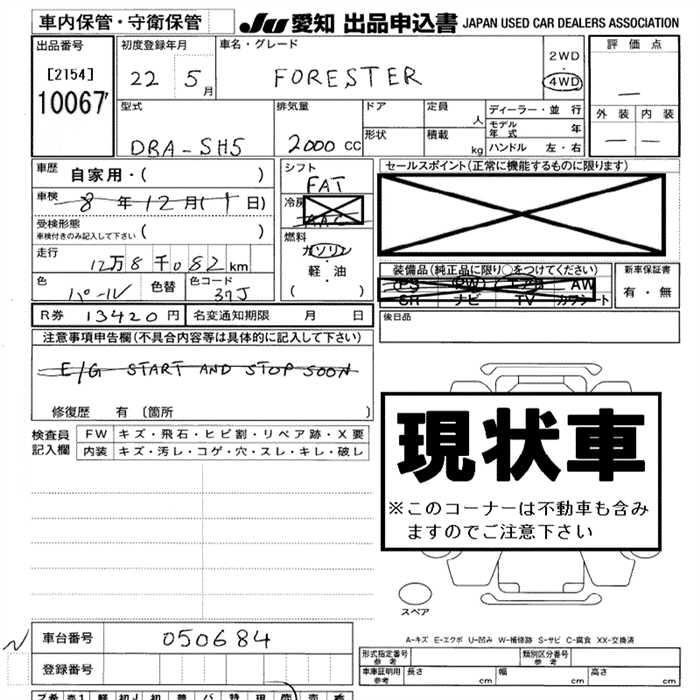 車内保管・守衛保管
JU 愛知 出品申込書 JAPAN USED CAR DEALERS ASSOCIATION
出品番号 初度登録年月 車名・グレード 2WD ・ 4WD 評価点
[2154] 22 5月 FORESTER —
10067
型式 排気量 ドア 定員 人 ディーラー・並行 外装 内装
DBA-SH5 2000cc 形状 積載 kg モデル年式 年 — —
ハンドル 左・右
車歴 自家用・( ) シフト FAT セールスポイント(正常に機能するものに限ります)
車検 8年12月(1日) 冷房 AAC
受検形態 車検付きのみ記入して下さい ( ) 燃料 ガソリン
走行 12万8千082km ・軽・油 装備品(純正品に限り○をつけてください) 新車保証書
色 パール 色替 色コード 37J ( ) PS PW エアB AW 有・無
SR ナビ TV カワシート
R券 13420円 名変通知期限 月 日 後日品
注意事項申告欄(不具合内容等は具体的に記入して下さい)
E/G START AND STOP SOON
修復歴 有 [箇所 ]
検査員記入欄 FW キズ・飛石・ヒビ割・リペア跡・X要
内装 キズ・汚レ・コゲ・穴・スレ・キレ・破レ
現状車
※このコーナーは不動車も含み
ますのでご注意下さい
スペア
A-キズ E-エクボ U-凹み W-補修跡 S-サビ C-腐食 XX-交換済
車台番号 050684
登録番号
形式指定番号 参考 類別区分番号 参考
車庫証明用 参考 長さ cm 幅 cm 高さ cm